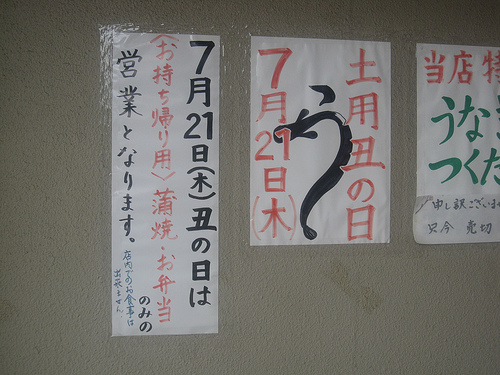 7月21日(木)丑の日は
(お持ち帰り用)蒲焼・お弁当
のみの
営業となります。
店内でのお食事は
出来ません。
土用丑の日
う
7月21日(木)
当店特
うな
つくだ
申し訳ございま
只今 売切